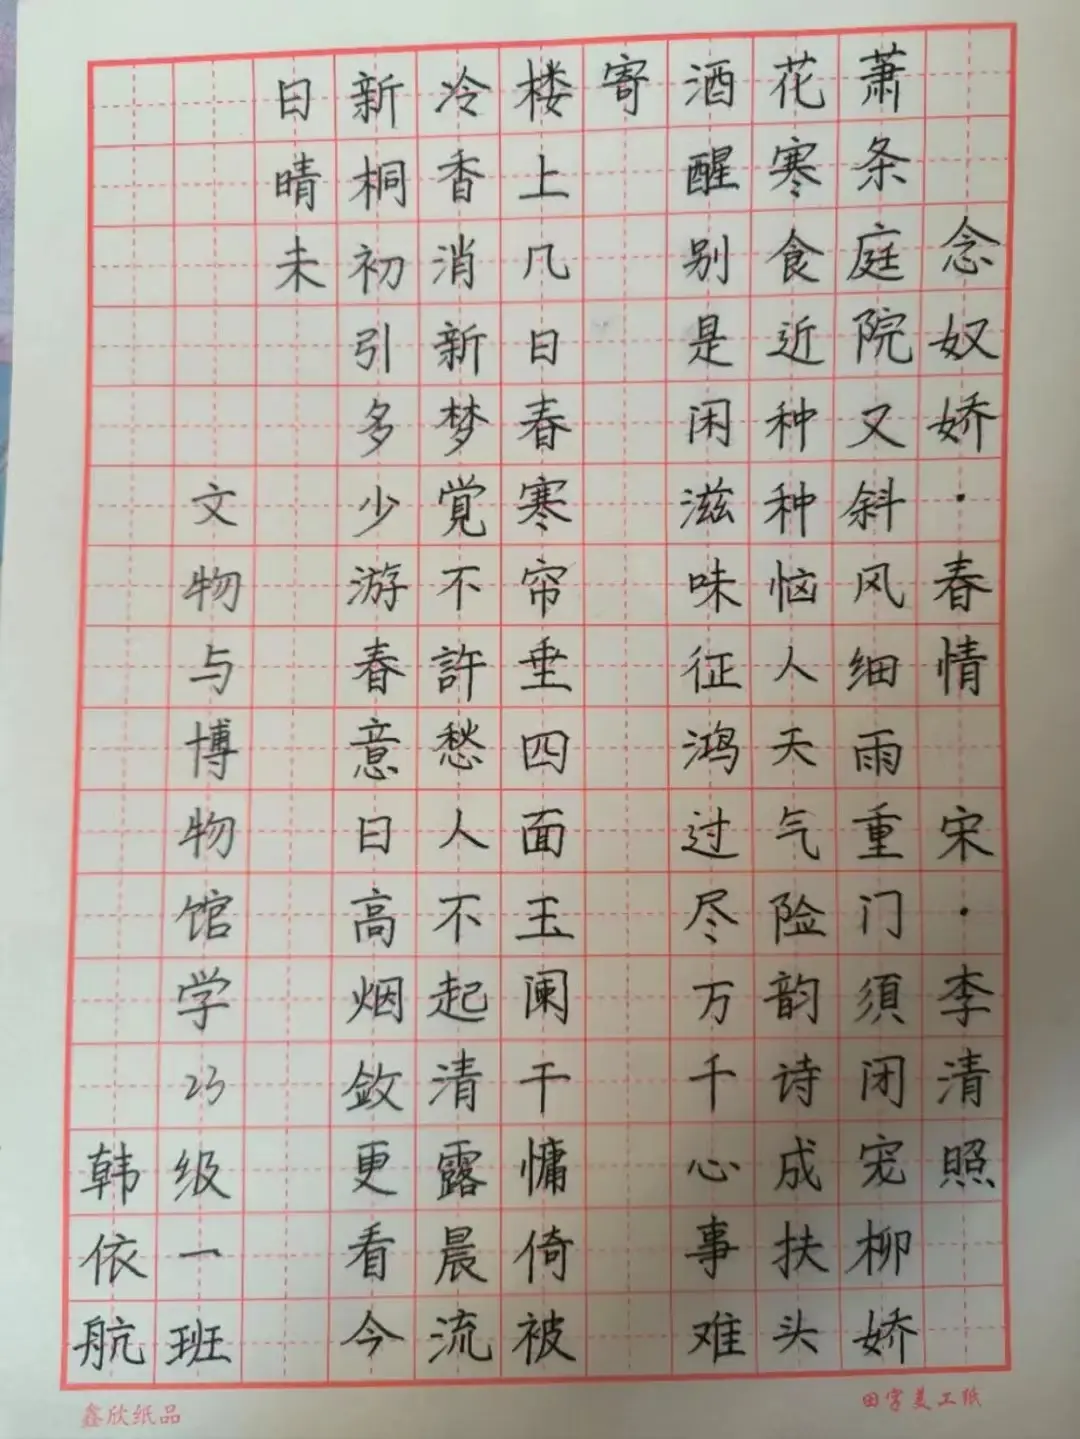 念奴娇·春情 宋·李清照
萧条庭院又斜风细雨重门须闭宠柳娇
花寒食近种种恼人天气险韵诗成扶头
酒醒别是闲滋味征鸿过尽万千心事难
寄
楼上几日春寒帘垂四面玉阑干慵倚被
冷香消新梦觉不許愁人不起清露晨流
新桐初引多少游春意日高烟敛更看今
日晴未
文物与博物馆学23级一班
韩依航
鑫欣纸品
田字美工纸